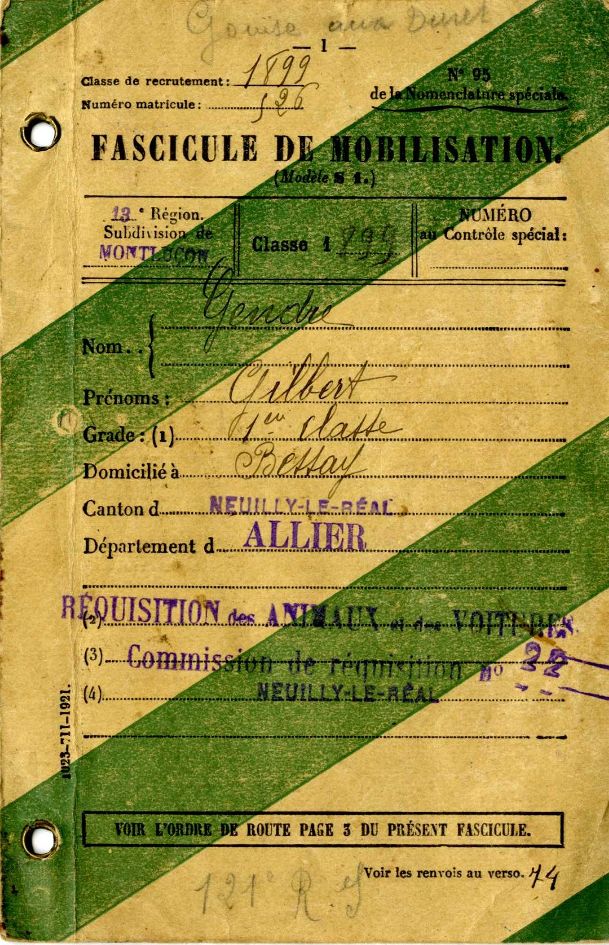 Gouise aux Duret
— 1 —
Classe de recrutement : 1899
Numéro matricule : 526
N° 95
de la Nomenclature spéciale.
FASCICULE DE MOBILISATION.
(Modèle S 1.)
13e Région.
Subdivision de
MONTLUÇON
Classe 1 899
NUMÉRO
au Contrôle spécial :
Nom.. Gendre
Prénoms : Gilbert
Grade : (1) 1ère classe
Domicilié à Bessay
Canton d NEUILLY-LE-RÉAL
Département d ALLIER
(2) RÉQUISITION des ANIMAUX et des VOITURES
(3) Commission de réquisition No 22
(4) NEUILLY-LE-RÉAL
1023-711-1921.
VOIR L'ORDRE DE ROUTE PAGE 3 DU PRÉSENT FASCICULE.
Voir les renvois au verso. 74
121e R I